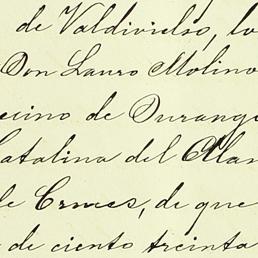 de Valdivielso, lo
Don Lauro Molino
ecino de Durang
Catalina del Alam
de Cruces, de que
de ciento treinta